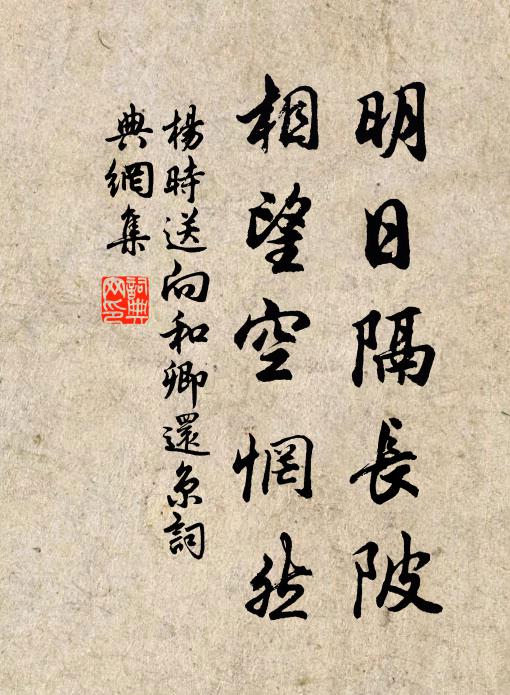 明日隔長陂
相望空惘然
楊時送向和卿還京詞
典網集
詞典
网印